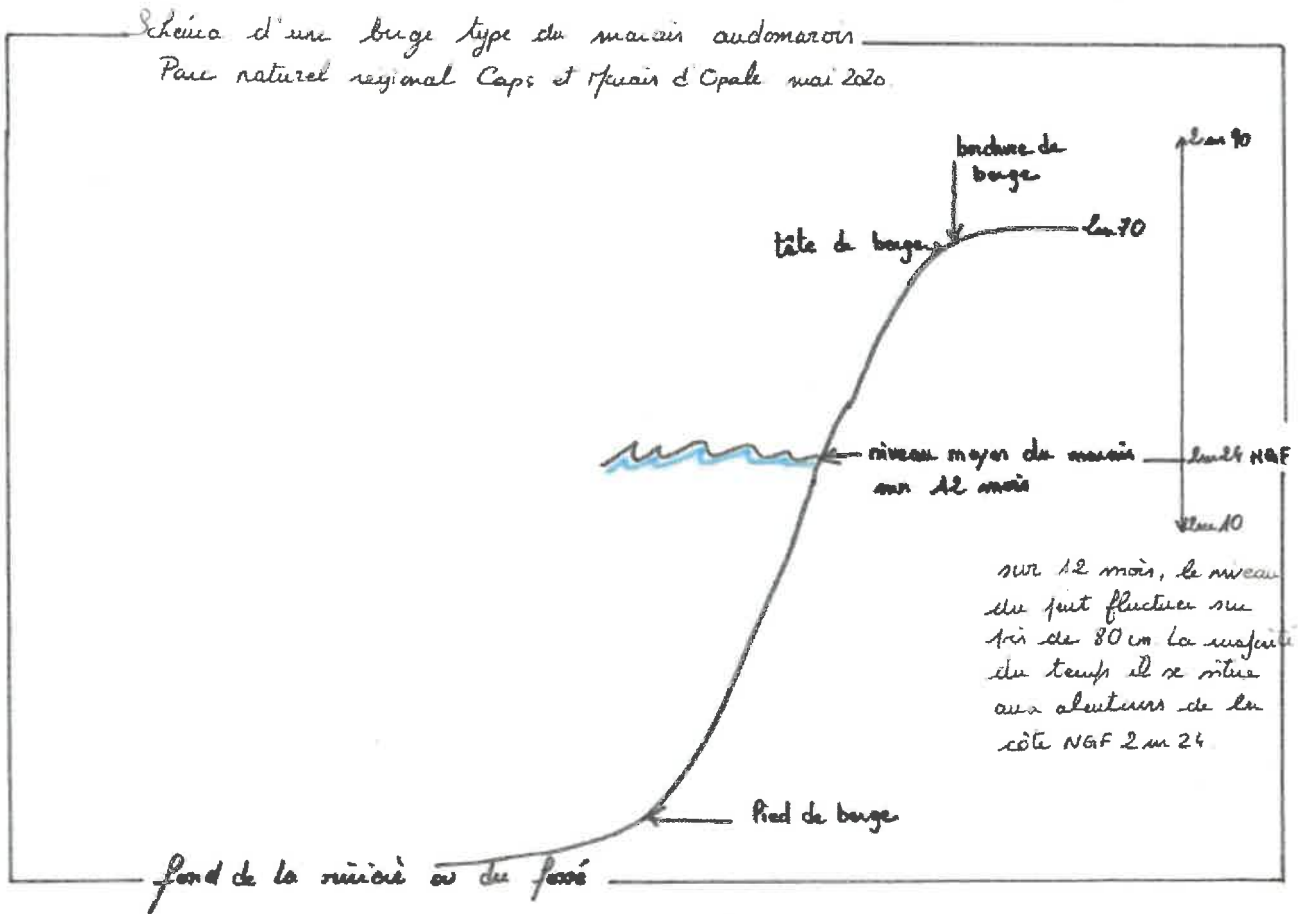 Schéma d'une berge type du marais audomarois
Parc naturel regional Caps et Marais d'Opale mai 2020
bordure de
berge
2m 90
tête de berge
2m 70
niveau moyen du marais
sur 12 mois
2m24 NGF
2m 10
sur 12 mois, le niveau
du peut fluctuer sur
près de 80 cm La majorité
du temps il se situe
aux alentours de la
côte NGF 2 m 24
Pied de berge
fond de la rivière ou du fossé